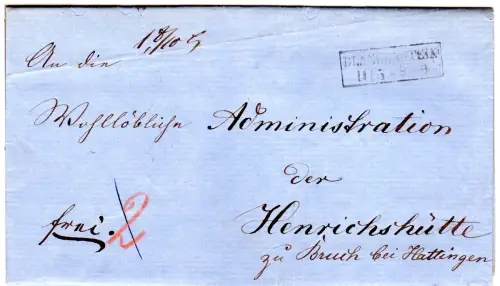 1 9/10 
An die
BLANKENSTEIN
11 5
Wohllöbliche Administration
der
frei. 2 Henrichshütte
zu Bruch bei Hattingen